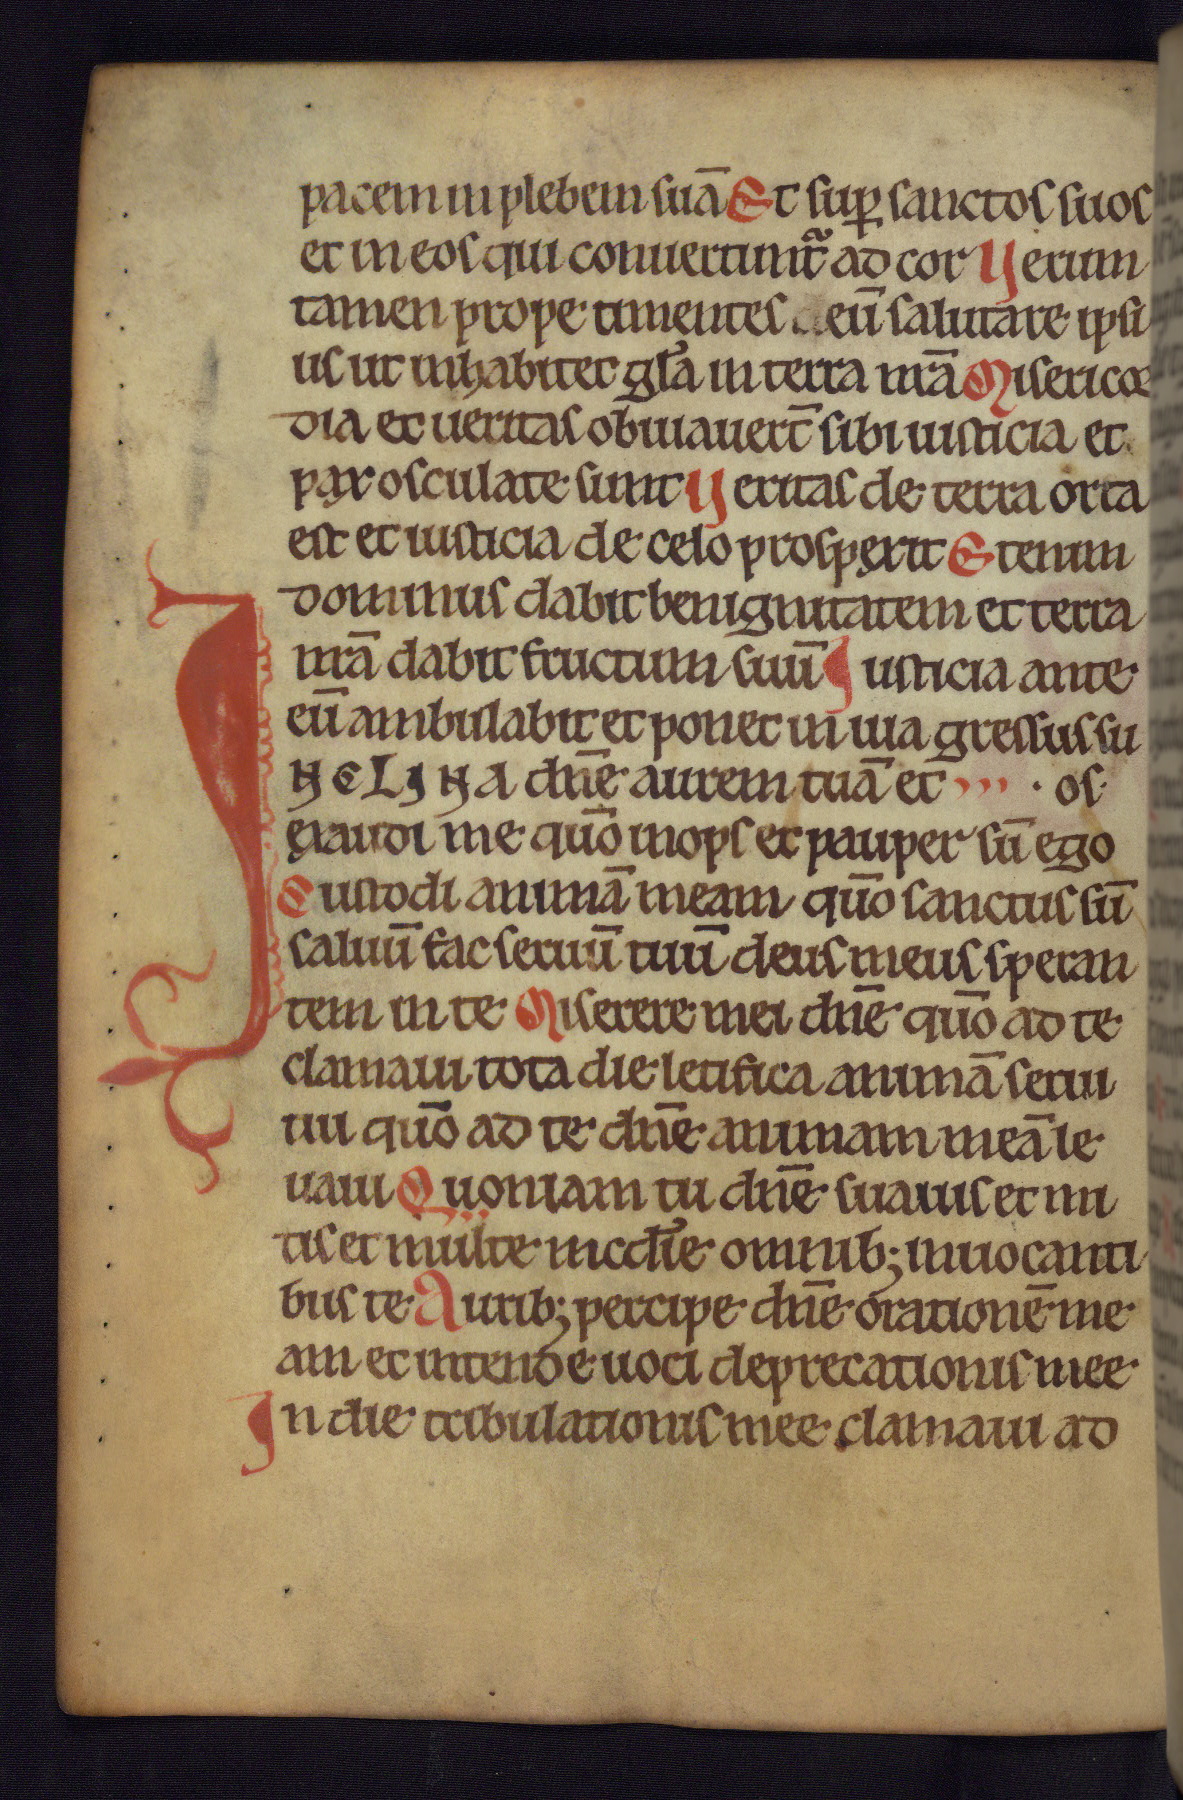 pacem in plebem suā Et suꝑ sanctos suos
et in eos qui conuertunt̃ ad cor Uerum
tamen prope timentes deū salutare ipsi
us ut inhabitet gl̃a in terra nr̄a Misericor
dia et ueritas obuiauert̄ sibi iusticia et
pax osculate sunt Ueritas de terra orta
est et iusticia de celo prosperit Etenim
dominus dabit benignitatem et terra
nr̄a dabit fructum suū Iusticia ante
eū ambulabit et ponet in uia gressus su
INCLINA dn̄e aurem tuā et os
exaudi me qūo inops et pauper sū ego
Custodi animā meam qūo sanctus sū
saluū fac seruū tuū deus meus speran
tem in te Miserere mei dn̄e qūo ad te
clamaui tota die letifica animā serui
tui qūo ad te dn̄e animam meā le
uaui Quoniam tu dn̄e suauis et mi
tis et multe mcd̃ie omnib; inuocanti
bus te Aurib; percipe dn̄e orationē me
am et intende uoci deprecationis mee
In die tribulationis mee clamaui ad